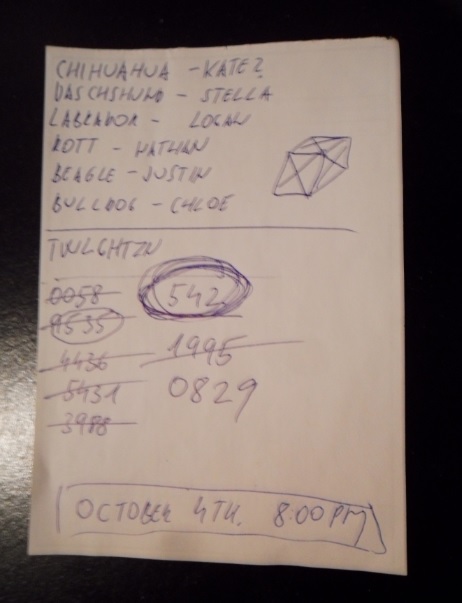 CHIHUAHUA - KATE?
DASCHSHUND - STELLA
LABRADOR - LOGAN
ROTT - NATHAN
BEAGLE - JUSTIN
BULLDOG - CHLOE
TWLGHTZN
0058
542
9535
4436
1995
5431
0829
3988
OCTOBER 4TH. 8:00 PM